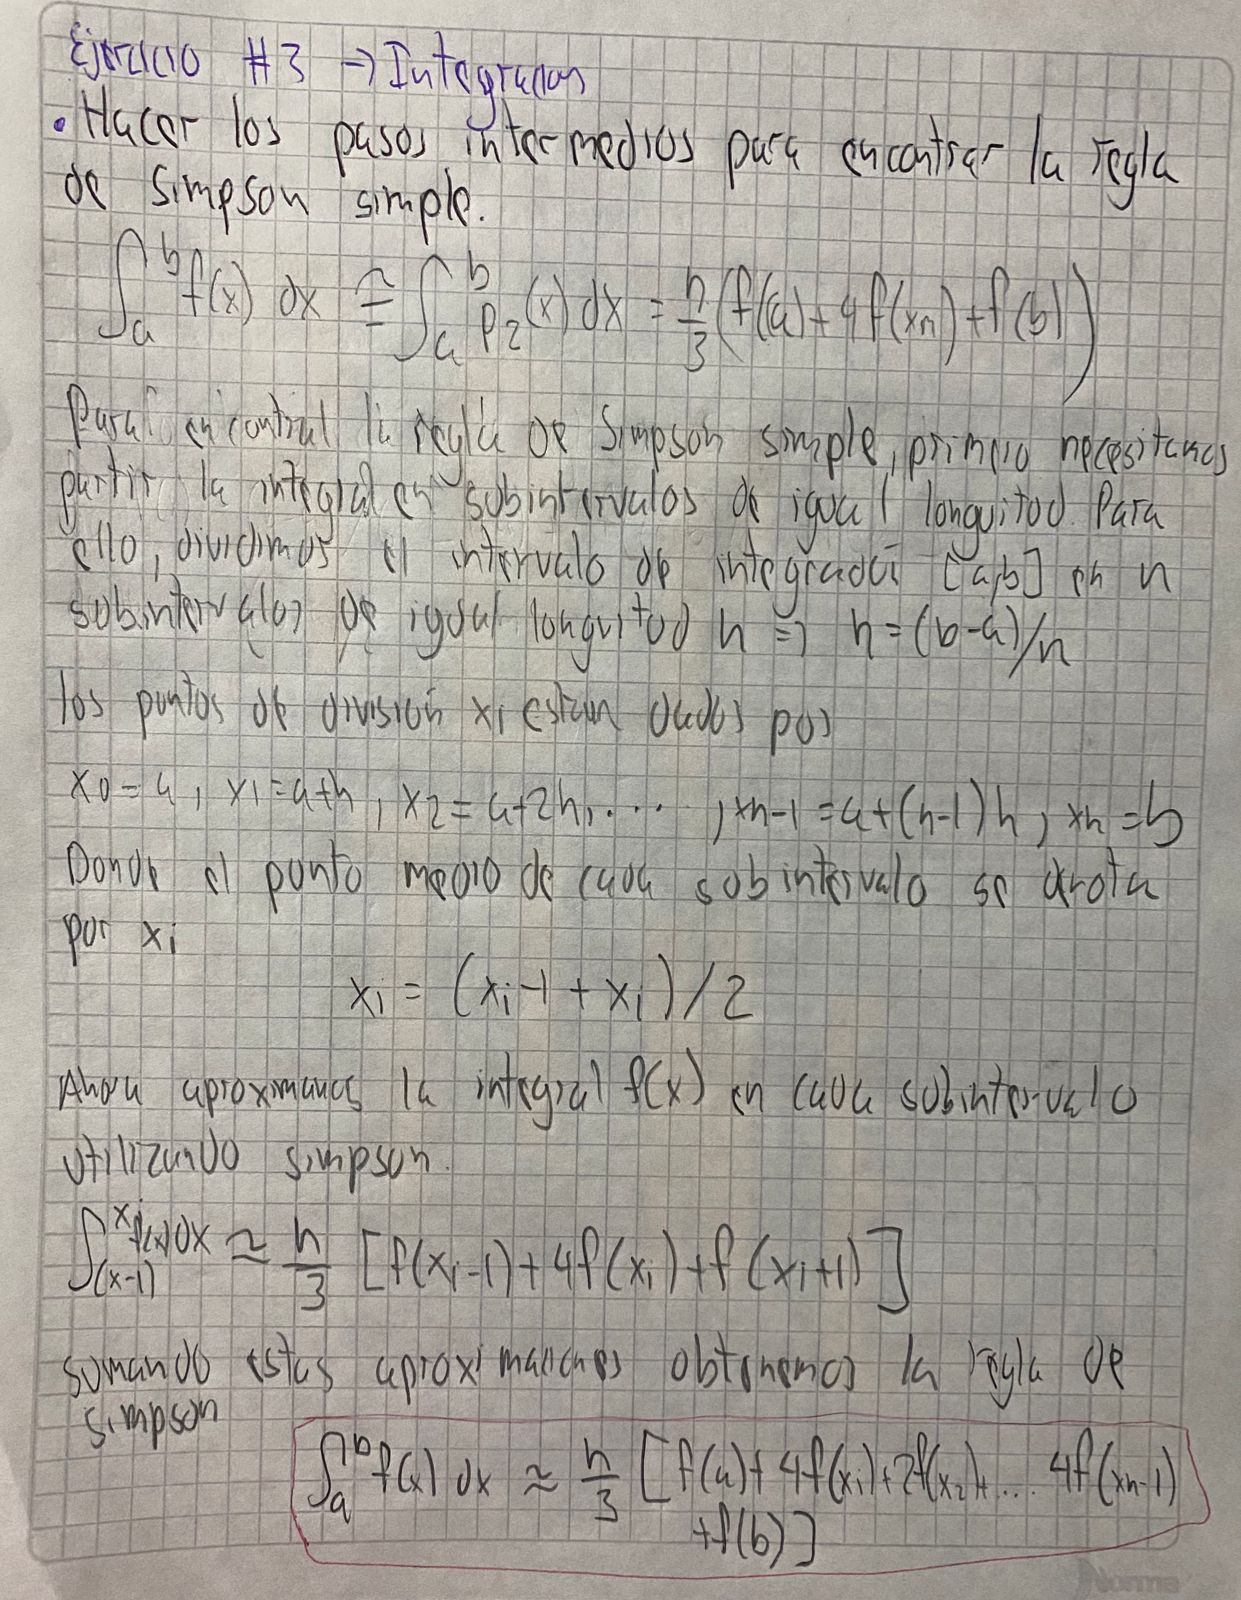 Ejercicio #3 → Integracion
• Hacer los pasos intermedios para encontrar la regla
de Simpson simple.
∫_a^b f(x) dx ≅ ∫_a^b p2(x) dx = h/3 (f(a) + 4f(xm) + f(b))
Para encontrar la regla de Simpson simple, primero necesitamos
partir la integral en subintervalos de igual longuitod. Para
ello, dividimos el intervalo de integración [a,b] en n
subintervalos de igual longuitod h => h = (b-a)/n
los puntos de división xi estan dados por
x0 = a, x1 = a+h, x2 = a+2h, ..., xn-1 = a+(n-1)h, xn = b
Donde el punto medio de cada subintervalo se denota
por xi
xi = (xi-1 + xi)/2
Ahora aproximamos la integral f(x) en cada subintervalo
utilizando simpson.
∫_(x-1)^xi f(x) dx ≃ h/3 [f(xi-1) + 4f(xi) + f(xi+1)]
sumando estas aproximaciones obtenemos la regla de
simpson
∫_a^b f(x) dx ≈ h/3 [f(a) + 4f(x1) + 2f(x2) + ... 4f(xn-1)
+ f(b)]
Norma